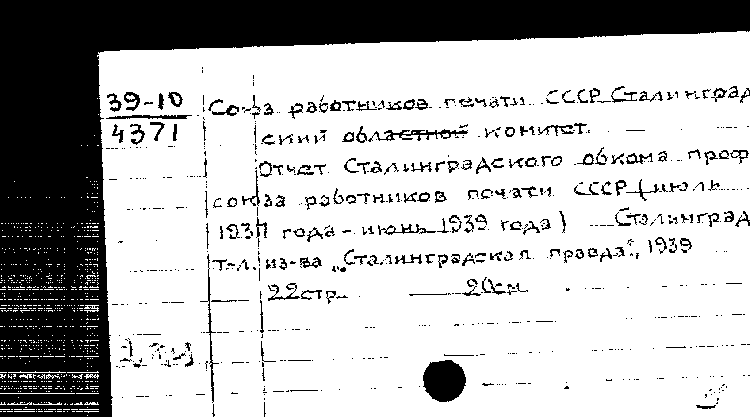 39-10
4371
Союз работников печати СССР Сталинград
ский областной комитет.
Отчет Сталинградского обкома проф
союза работников печати СССР (июль
1937 года - июнь 1939 года) Сталинград
т-л. из-ва "Сталинградская правда", 1939
22стр. 20см